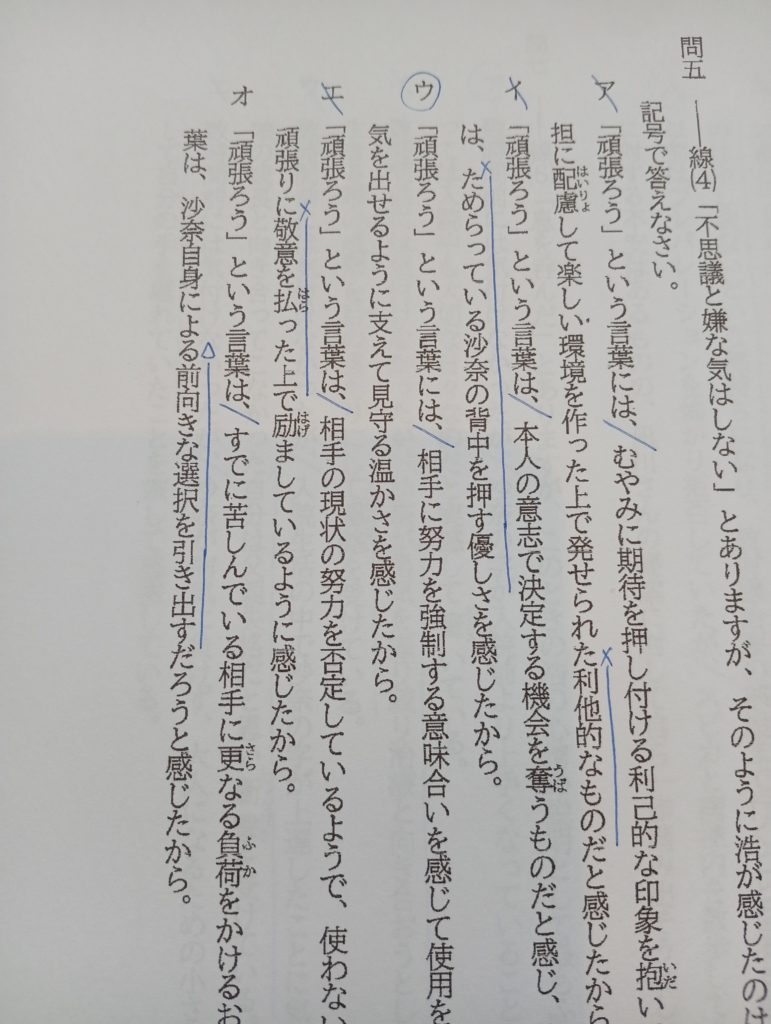 問五 ――線(4)「不思議と嫌な気はしない」とありますが、そのように浩が感じたのは
記号で答えなさい。
ア 「頑張ろう」という言葉には、むやみに期待を押し付ける利己的な印象を抱い
担に配慮して楽しい環境を作った上で発せられた利他的なものだと感じたから
イ 「頑張ろう」という言葉は、本人の意志で決定する機会を奪うものだと感じ、
は、ためらっている沙奈の背中を押す優しさを感じたから。
ウ 「頑張ろう」という言葉には、相手に努力を強制する意味合いを感じて使用を
気を出せるように支えて見守る温かさを感じたから。
エ 「頑張ろう」という言葉は、相手の現状の努力を否定しているようで、使わない
頑張りに敬意を払った上で励ましているように感じたから。
オ 「頑張ろう」という言葉は、すでに苦しんでいる相手に更なる負荷をかけるお
葉は、沙奈自身による前向きな選択を引き出すだろうと感じたから。